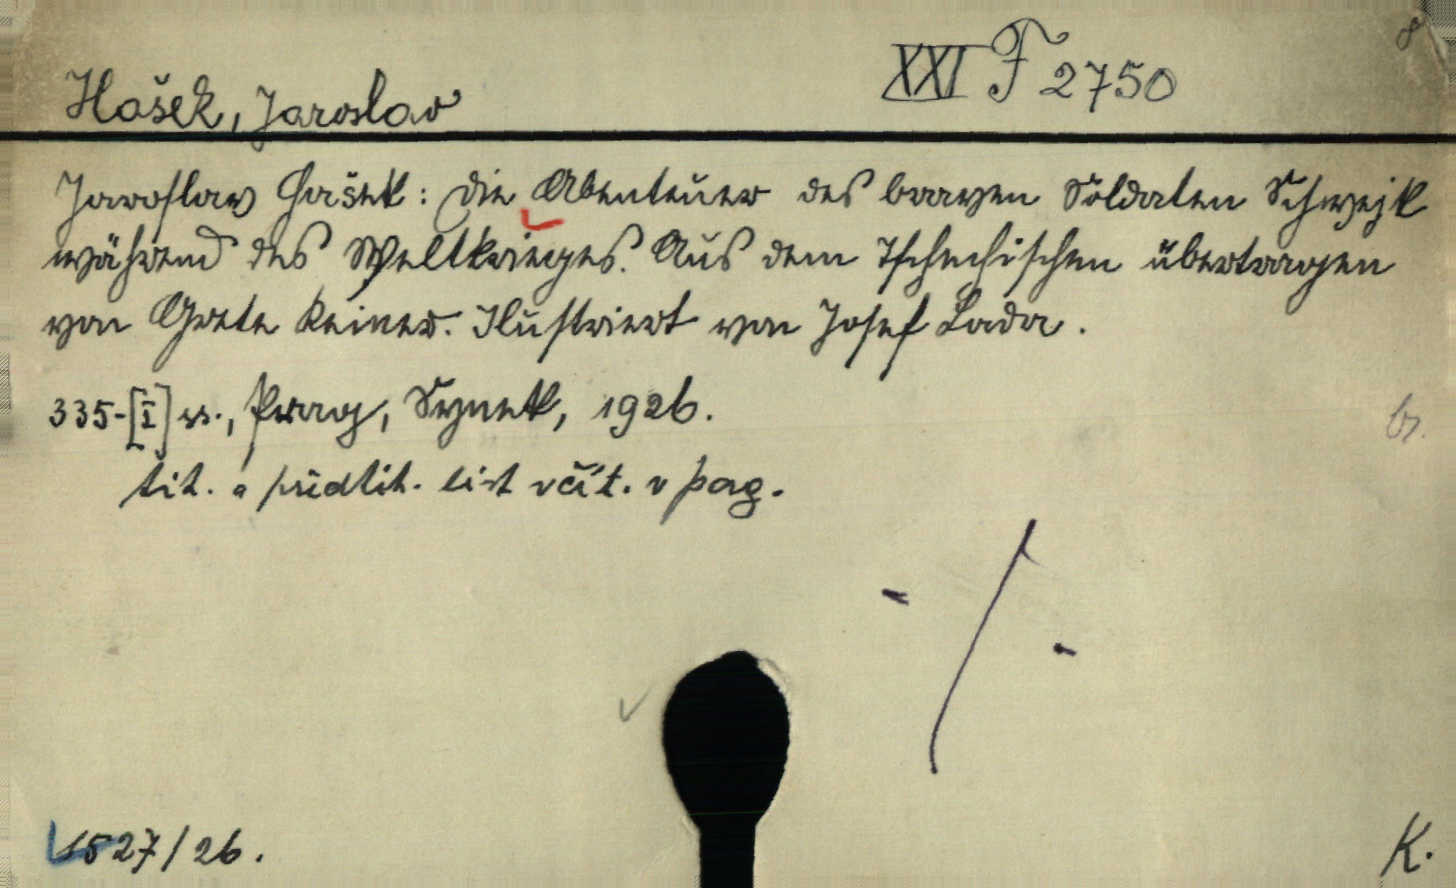 8
XXI F 2750
Hašek, Jaroslav
Jaroslav Hašek: Die Abenteuer des braven Soldaten Schwejk
während des Weltkrieges. Aus dem Tschechischen übertragen
von Grete Reiner. Ilustriert von Josef Lada.
335-[I] s., Prag, Synek, 1926.
br.
tit. a předtit. list včít. v pag.
1527/26.
K.